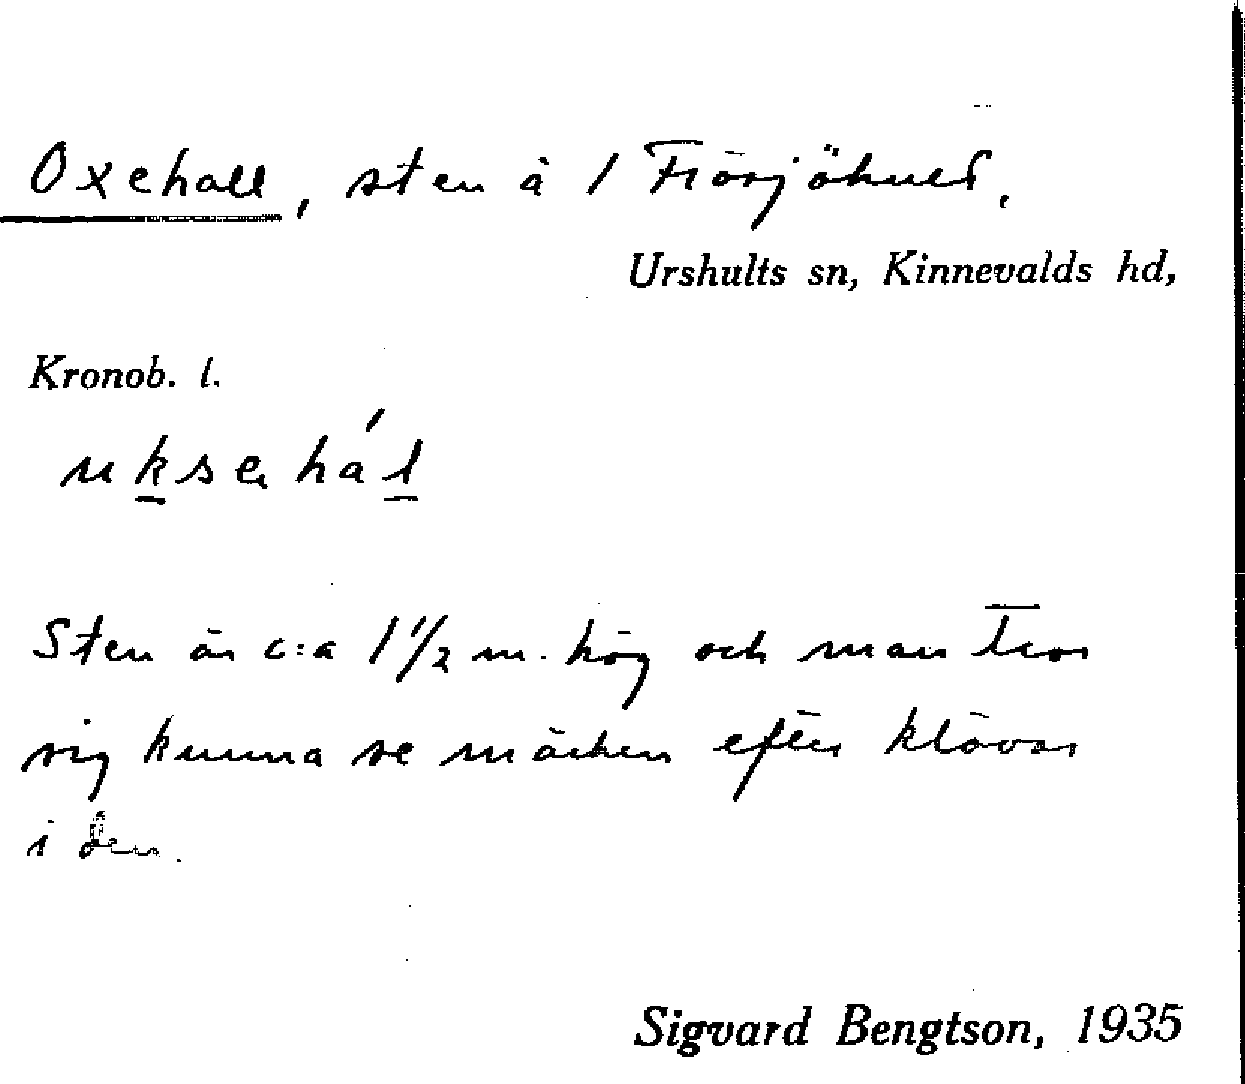 Oxehall, sten å 1 Frösjöhult.
Urshults sn, Kinnevalds hd,
Kronob. l.
uksehál
Sten är c:a 1 1/2 m. hög och man tror
sig kunna se märken efter klövar
i den.
Sigvard Bengtson, 1935